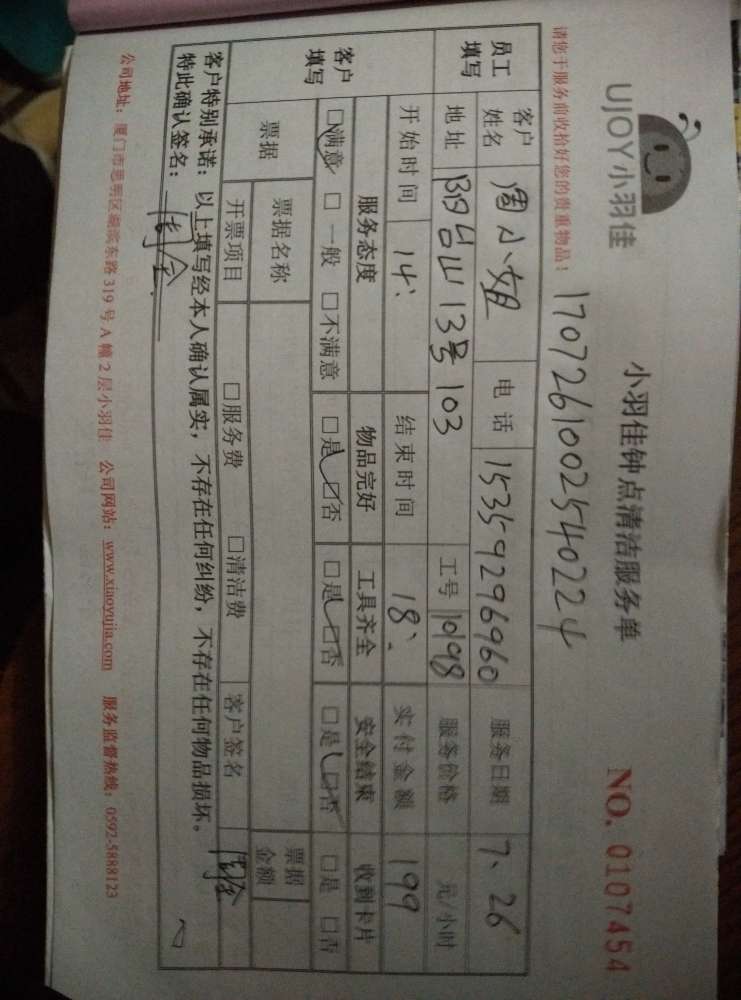 UJOY小羽佳
小羽佳钟点清洁服务单
NO. 0107454
请您于服务前收拾好您的贵重物品!
1707261002540224
员工填写
客户姓名 周小姐 电话 15359296960 服务日期 7、26
地址 13号103 工号 10198 服务价格 元/小时
开始时间 14: 结束时间 18: 实付金额 199
客户填写
服务态度 物品完好 工具齐全 安全结束 收到卡片
□满意 □一般 □不满意 □是 □否 □是 □否 □是 □否 □是 □否
票据 票据名称 票据金额
开票项目 □服务费 □清洁费 客户签名
客户特别承诺:以上填写经本人确认属实,不存在任何纠纷,不存在任何物品损坏。
特此确认签名:
公司地址:厦门市思明区湖滨东路319号A幢2层小羽佳 公司网站:www.xiaoyujia.com 服务监督热线:0592-5888123